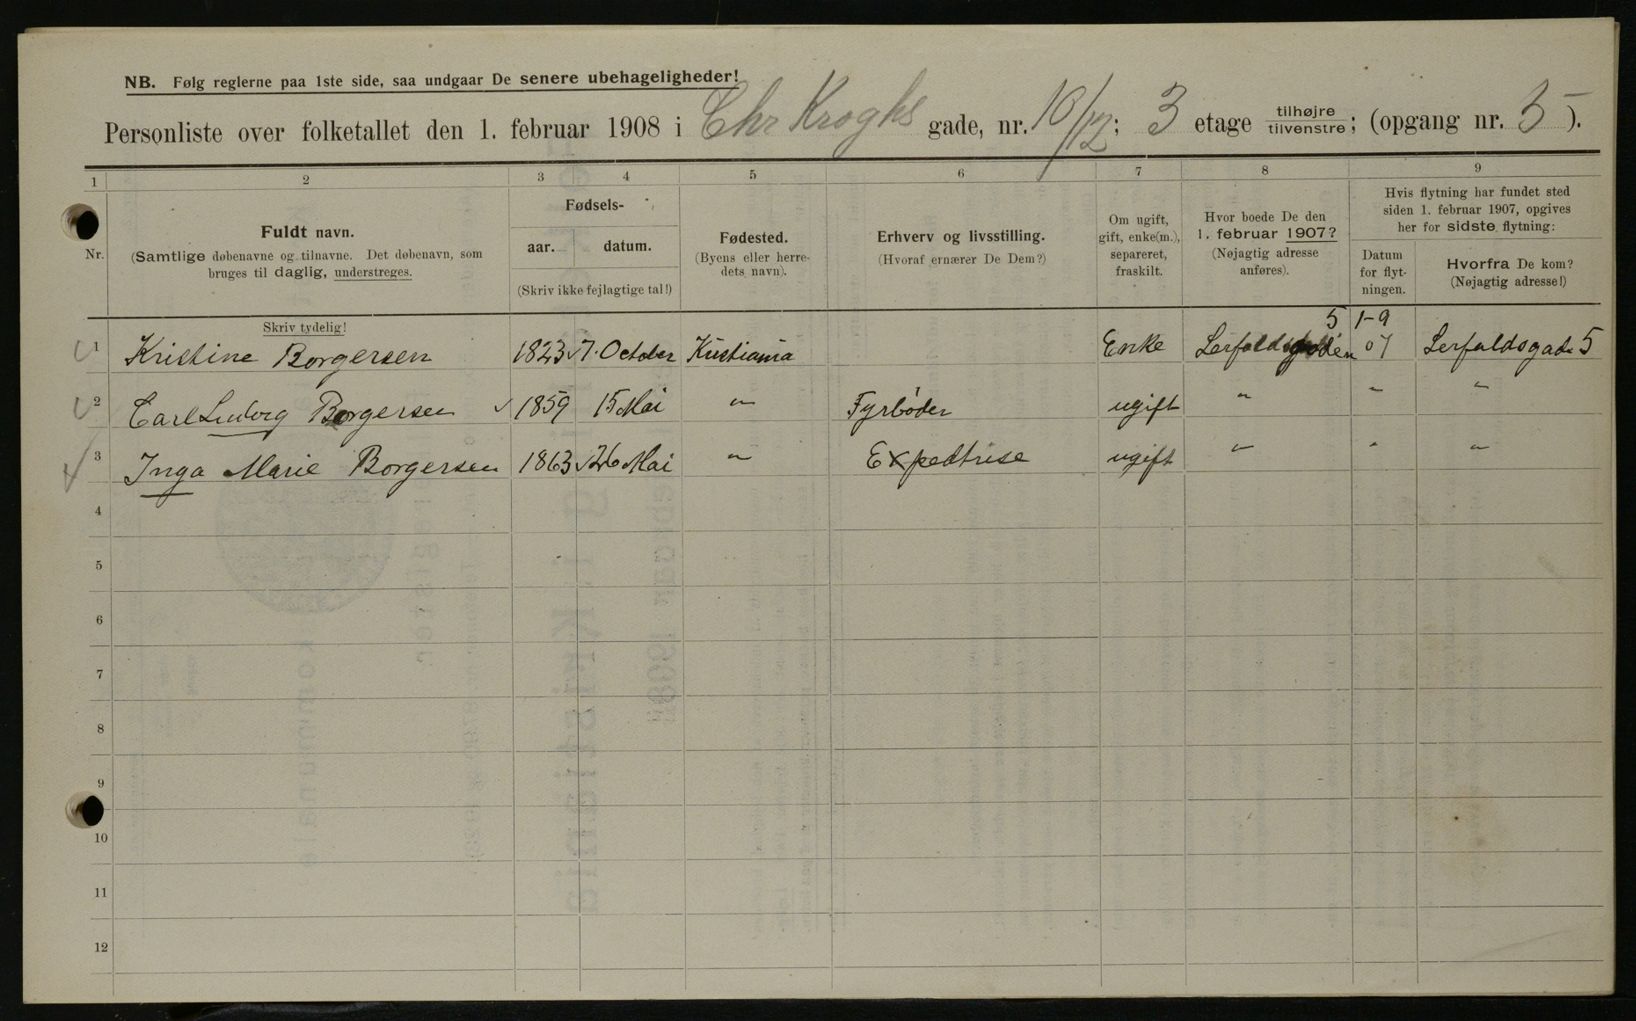 NB. Følg reglerne paa 1ste side, saa undgaar De senere ubehageligheder!
Personliste over folketallet den 1. februar 1908 i Chr Kroghs gade, nr. 10/12; 3 etage tilhøjre/tilvenstre; (opgang nr. 5).
1 2 3 4 5 6 7 8 9
Nr.
Fuldt navn.
(Samtlige døbenavne og tilnavne. Det døbenavn, som
bruges til daglig, understreges.
Skriv tydelig!
Fødsels-
aar. datum.
(Skriv ikke fejlagtige tal!)
Fødested.
(Byens eller herre-
dets navn).
Erhverv og livsstilling.
(Hvoraf ernærer De Dem?)
Om ugift,
gift, enke(m.),
separeret,
fraskilt.
Hvor boede De den
1. februar 1907?
(Nøjagtig adresse
anføres).
Hvis flytning har fundet sted
siden 1. februar 1907, opgives
her for sidste flytning:
Datum
for flyt-
ningen.
Hvorfra De kom?
(Nøjagtig adresse!)
5 1-9
1 Kristine Borgersen 1823 7. October Kristiania Enke Lerfaldsgaden 07 Lerfaldsgade 5
2 Carl Ludvig Borgersen 1859 15 Mai " Fyrbøder ugift " " "
3 Inga Marie Borgersen 1863 26 Mai " Expeditrise ugift " " "
4
5
6
7
8
9
10
11
12